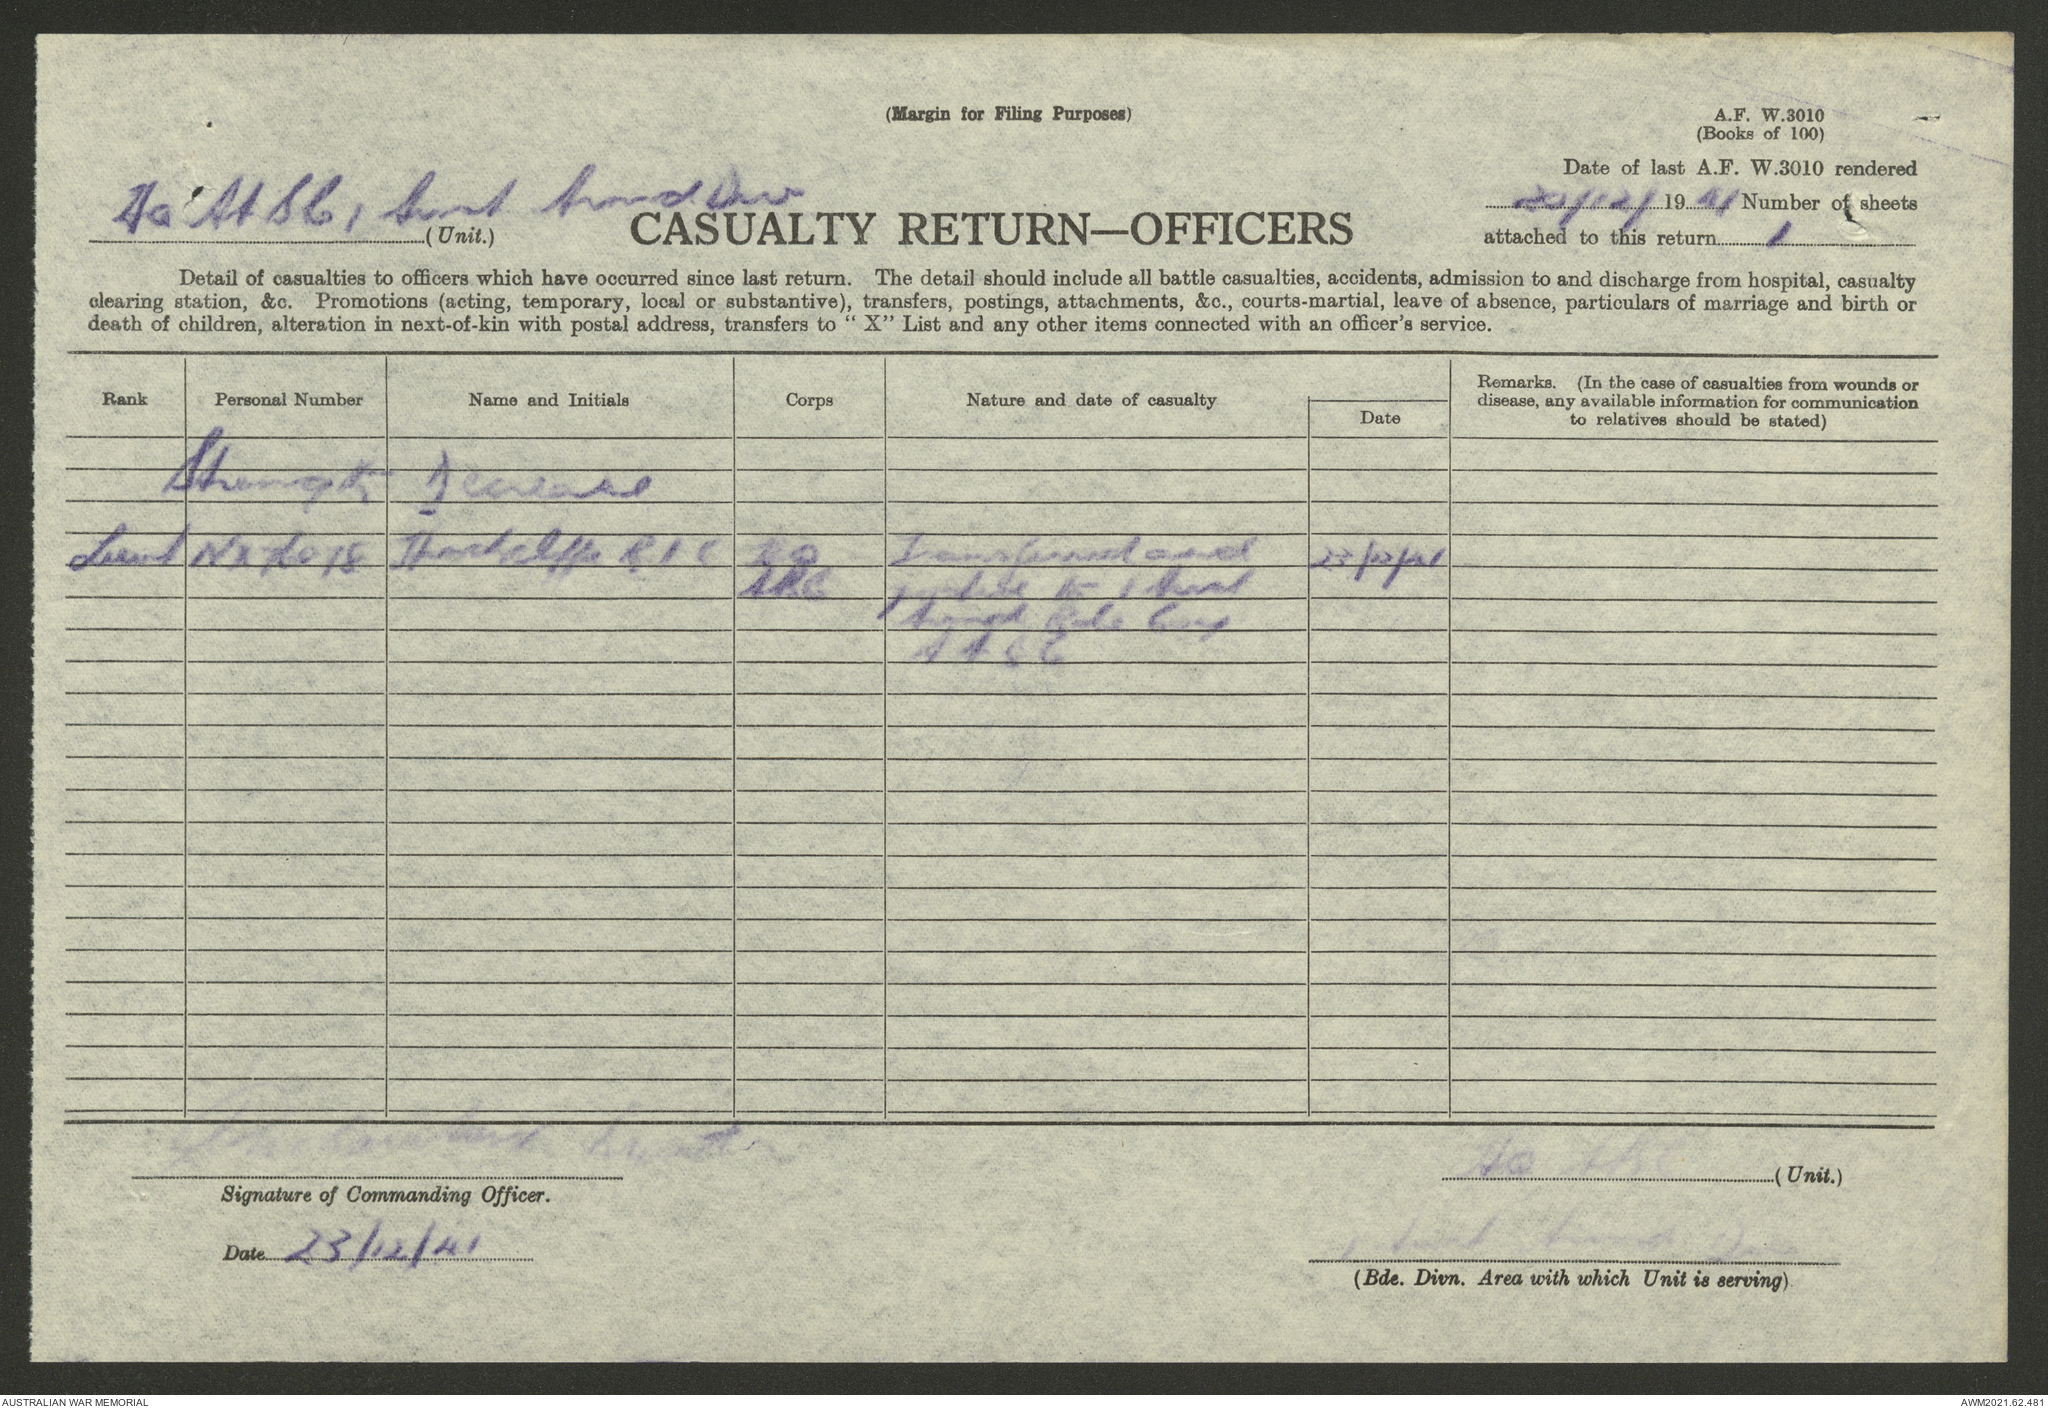 (Margin for Filing Purposes)
A.F. W.3010
(Books of 100)
Date of last A.F. W.3010 rendered
/12/ 19 41 Number of sheets
attached to this return 1
Hq AASC, 1 Aust Armd Div
(Unit.)
CASUALTY RETURN—OFFICERS
Detail of casualties to officers which have occurred since last return. The detail should include all battle casualties, accidents, admission to and discharge from hospital, casualty
clearing station, &c. Promotions (acting, temporary, local or substantive), transfers, postings, attachments, &c., courts-martial, leave of absence, particulars of marriage and birth or
death of children, alteration in next-of-kin with postal address, transfers to " X" List and any other items connected with an officer's service.
Rank Personal Number Name and Initials Corps Nature and date of casualty Date Remarks. (In the case of casualties from wounds or
disease, any available information for communication
to relatives should be stated)
Strength Decrease
Lieut Transferred and 23/12/41
posted to 1 Aust
Armd Coy
AASC
Signature of Commanding Officer.
Hq (Unit.)
Date 23/12/41
1 Aust Armd Div
(Bde. Divn. Area with which Unit is serving)
AUSTRALIAN WAR MEMORIAL
AWM2021.62.481